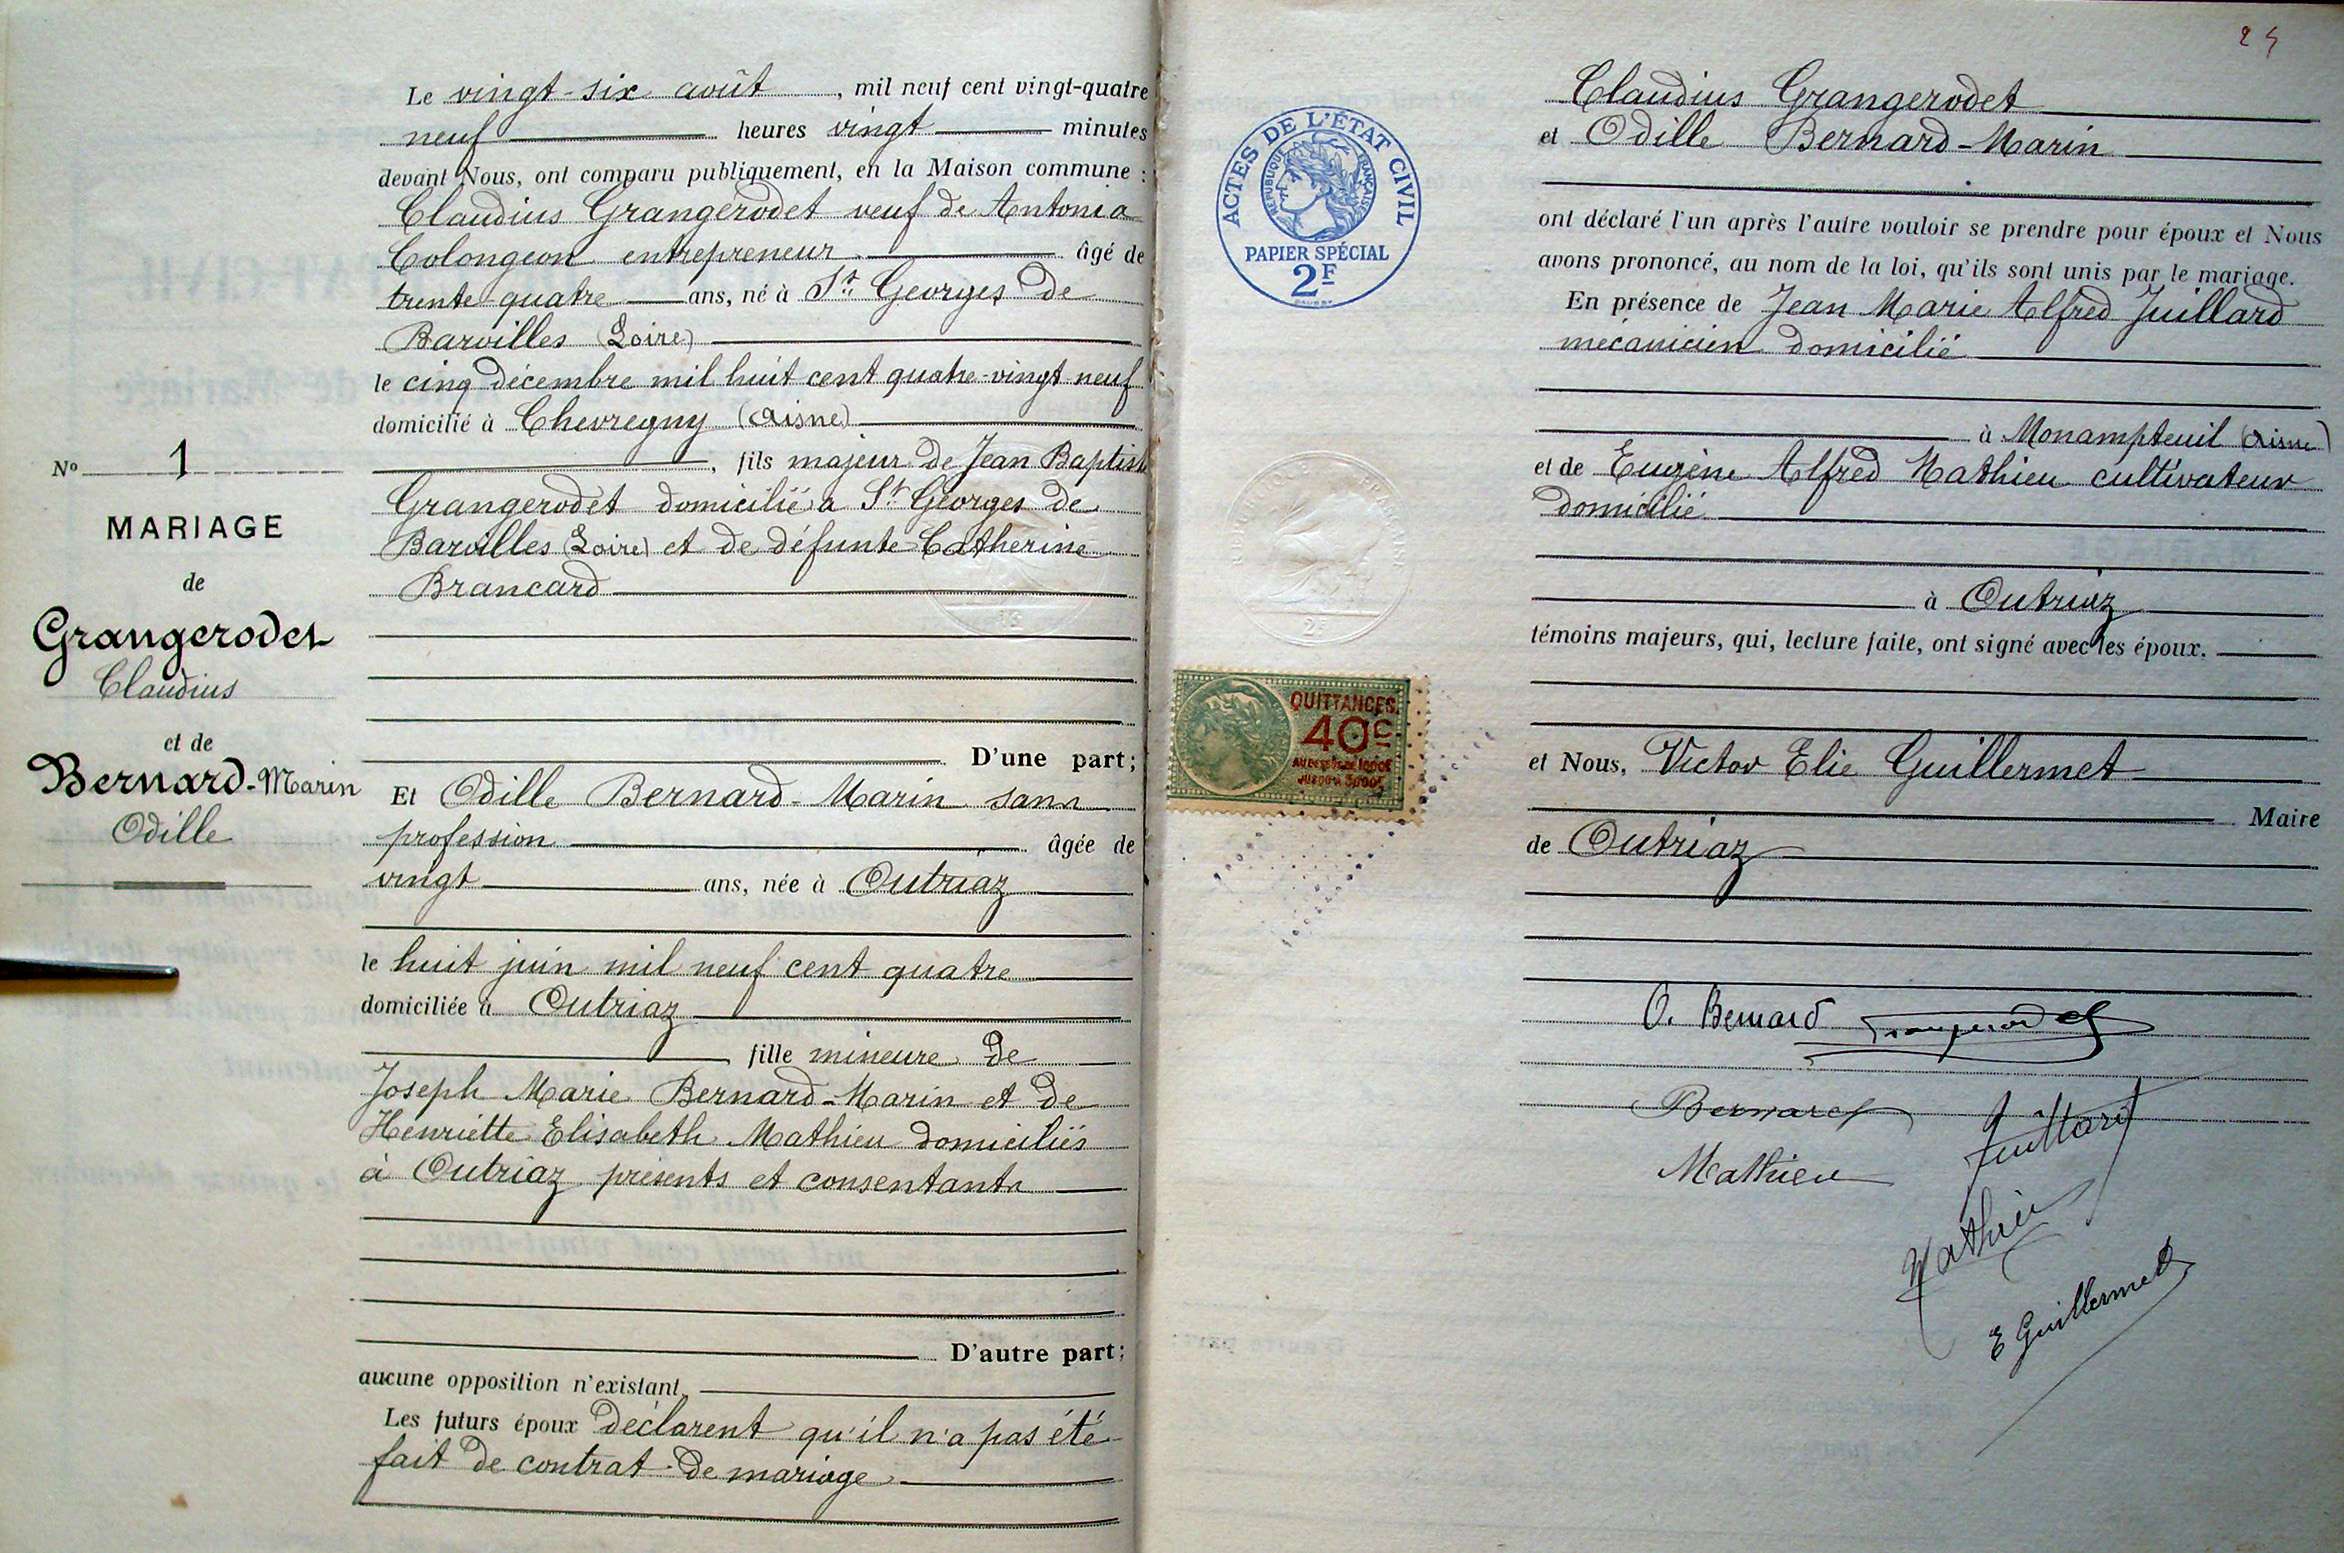 Le vingt-six août, mil neuf cent vingt-quatre
neuf heures vingt minutes
devant Nous, ont comparu publiquement, en la Maison commune :
Claudius Grangerodet veuf de Antonia
Colongeon entrepreneur âgé de
trente-quatre ans, né à St Georges de
Baroilles (Loire)
le cinq décembre mil huit cent quatre-vingt neuf
domicilié à Chevregny (Aisne)
, fils majeur de Jean Baptiste
Grangerodet domicilié à St Georges de
Baroilles (Loire) et de défunte Catherine
Brancard
D'une part;
Et Odille Bernard-Marin sans
profession âgée de
vingt ans, née à Outriaz
le huit juin mil neuf cent quatre
domiciliée à Outriaz
fille mineure de
Joseph Marie Bernard-Marin et de
Henriette Elisabeth Mathieu domiciliés
à Outriaz présents et consentants
D'autre part;
aucune opposition n'existant.
Les futurs époux déclarent qu'il n'a pas été
fait de contrat de mariage
No 1
MARIAGE
de
Grangerodet
Claudius
et de
Bernard-Marin
Odille
ACTES DE L'ÉTAT CIVIL
RÉPUBLIQUE FRANÇAISE
PAPIER SPÉCIAL
2F
2F
QUITTANCES
40c
24
Claudius Grangerodet
et Odille Bernard-Marin
ont déclaré l'un après l'autre vouloir se prendre pour époux et Nous
avons prononcé, au nom de la loi, qu'ils sont unis par le mariage.
En présence de Jean Marie Alfred Juillard
mécanicien domicilié
à Monampteuil (Aisne)
et de Eugène Alfred Mathieu cultivateur
domicilié
à Outriaz
témoins majeurs, qui, lecture faite, ont signé avec les époux.
et Nous, Victor Elie Guillermet
Maire
de Outriaz
O. Bernard Grangerodet
Bernard Juillard
Mathieu
Mathieu
E Guillermet